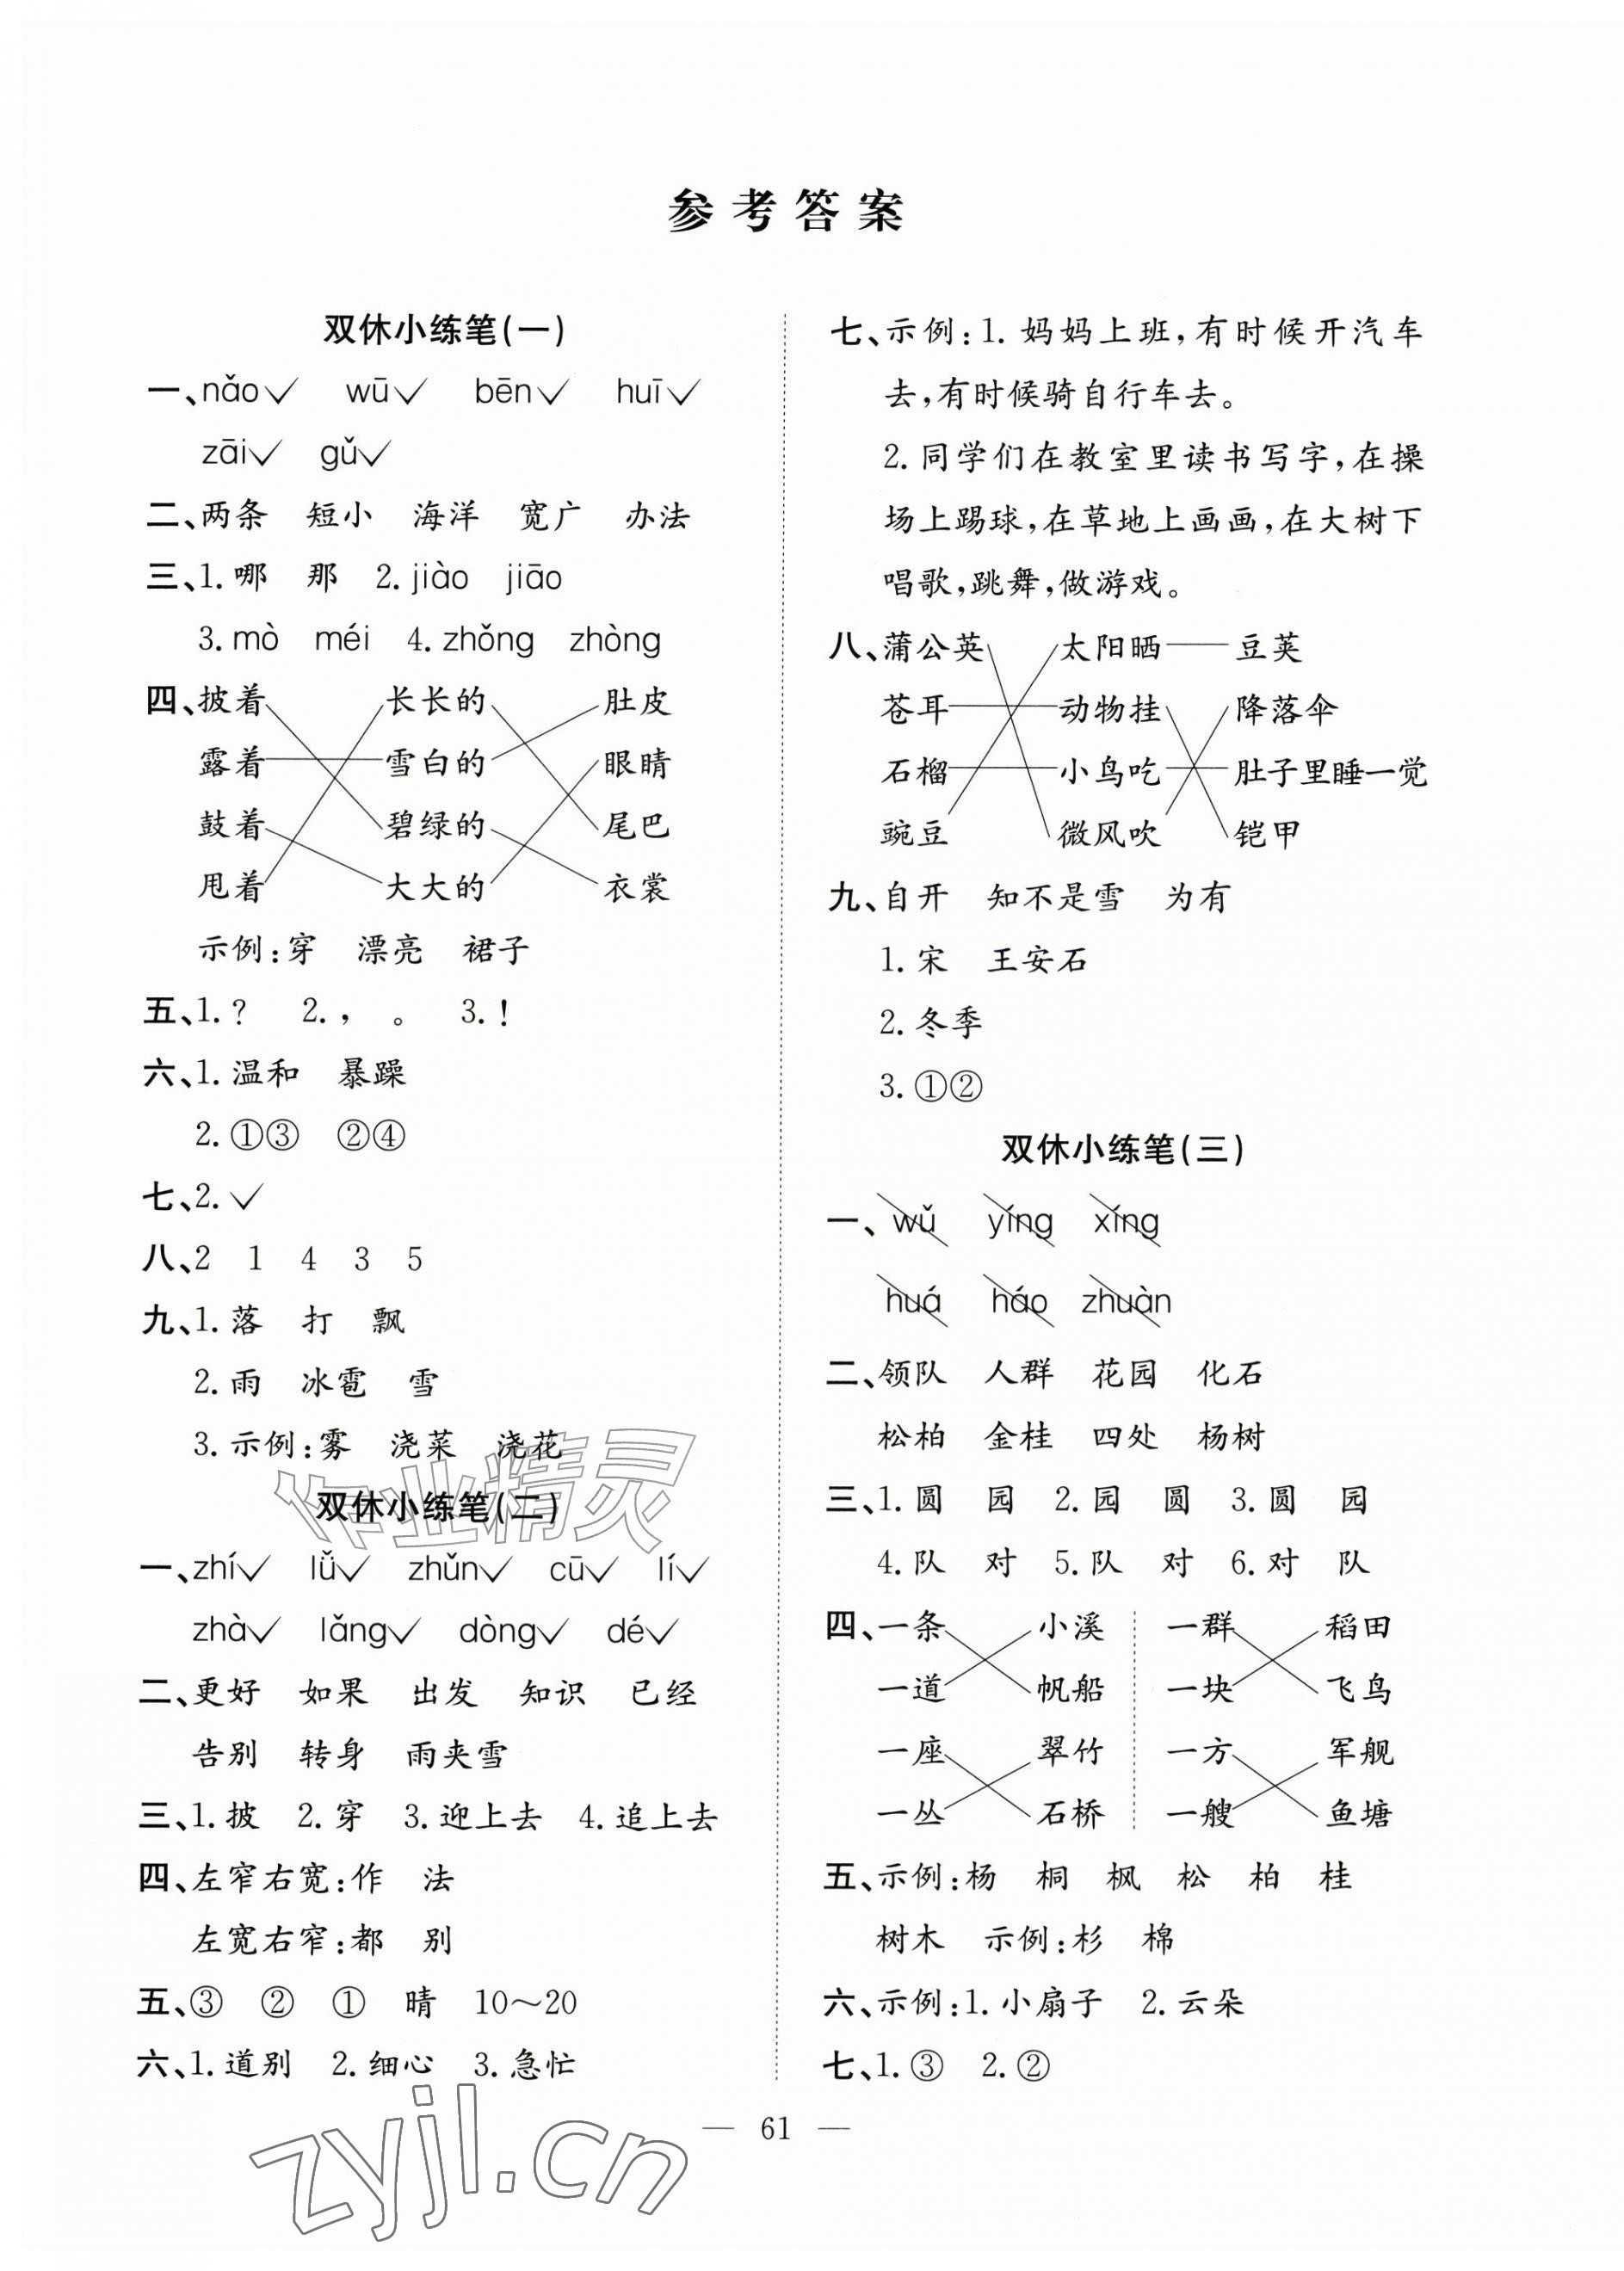 参考答案
双休小练笔(一)
一、nǎo✓ wū✓ bēn✓ huī✓
zāi✓ gǔ✓
二、两条 短小 海洋 宽广 办法
三、1.哪 那 2.jiào jiāo
3.mò méi 4.zhǒng zhòng
四、披着 长长的 肚皮
露着 雪白的 眼睛
鼓着 碧绿的 尾巴
甩着 大大的 衣裳
示例:穿 漂亮 裙子
五、1.? 2., 。 3.!
六、1.温和 暴躁
2.①③ ②④
七、2.✓
八、2 1 4 3 5
九、1.落 打 飘
2.雨 冰雹 雪
3.示例:雾 浇菜 浇花
双休小练笔(二)
一、zhí✓ lǚ✓ zhǔn✓ cū✓ lí✓
zhà✓ lǎng✓ dòng✓ dé✓
二、更好 如果 出发 知识 已经
告别 转身 雨夹雪
三、1.披 2.穿 3.迎上去 4.追上去
四、左窄右宽:作 法
左宽右窄:都 别
五、③ ② ① 晴 10～20
六、1.道别 2.细心 3.急忙
七、示例:1.妈妈上班,有时候开汽车
去,有时候骑自行车去。
2.同学们在教室里读书写字,在操
场上踢球,在草地上画画,在大树下
唱歌,跳舞,做游戏。
八、蒲公英 太阳晒 豆荚
苍耳 动物挂 降落伞
石榴 小鸟吃 肚子里睡一觉
豌豆 微风吹 铠甲
九、自开 知不是雪 为有
1.宋 王安石
2.冬季
3.①②
双休小练笔(三)
一、wǔ yíng xíng
huá háo zhuàn
二、领队 人群 花园 化石
松柏 金桂 四处 杨树
三、1.圆 园 2.园 圆 3.圆 园
4.队 对 5.队 对 6.对 队
四、一条 小溪 一群 稻田
一道 帆船 一块 飞鸟
一座 翠竹 一方 军舰
一丛 石桥 一艘 鱼塘
五、示例:杨 桐 枫 松 柏 桂
树木 示例:杉 棉
六、示例:1.小扇子 2.云朵
七、1.③ 2.②
— 61 —
作业精灵
zyjl.cn